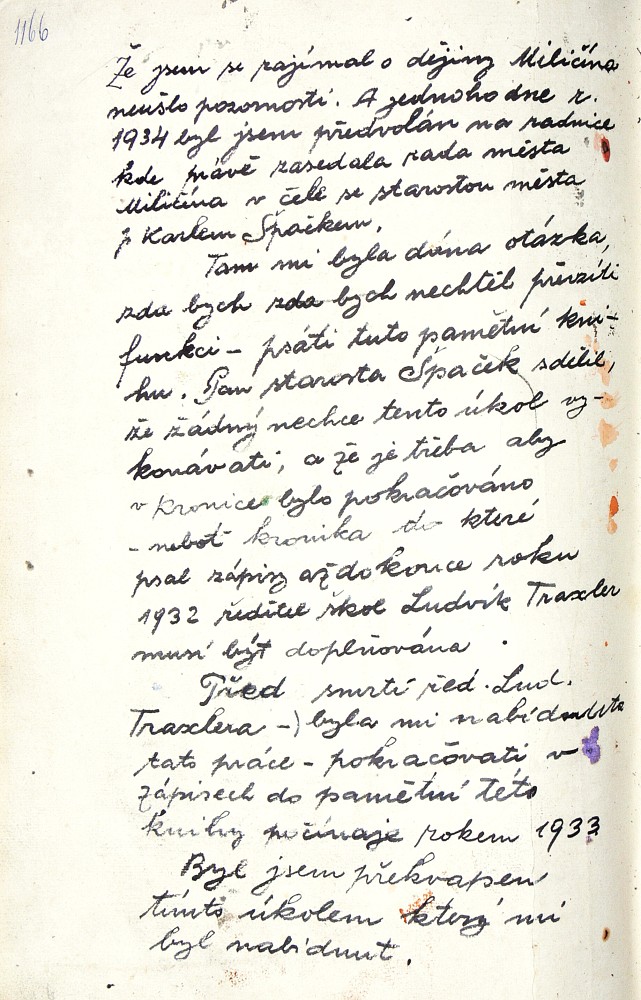 1166
Že jsem se zajímal o dějiny Miličína
neušlo pozornosti. A jednoho dne r.
1934 byl jsem předvolán na radnice
kde právě zasedala rada města
Miličína v čele se starostou města
p Karlem Špačkem.
Tam mi byla dána otázka,
zda bych zda bych nechtěl převzíti
funkci – psáti tuto pamětní kni-
hu. Pan starosta Špaček sdělil,
že žádný nechce tento úkol vy-
konávati, a že je třeba aby
v kronice bylo pokračováno
- neboť kronika do které
psal zápisy až do konce roku
1932 ředitel škol Ludvík Traxler
musí být doplňována.
Před smrtí řed. Lud.
Traxlera -) byla mi nabídnuta
tato práce - pokračovati v
zápisech do pamětní této
knihy počínaje rokem 1933
Byl jsem překvapen
tímto úkolem který mi
byl nabídnut.